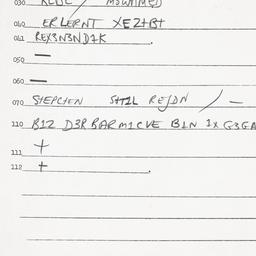 030
040 ERLERNT XEZ+B+
041 REX3N3ND1K
050 —
060 —
070 STEPCHEN S++2L REJDN / —
110 B1Z D3R BARM1CVE B1N 1X G3GA
111 +
112 +